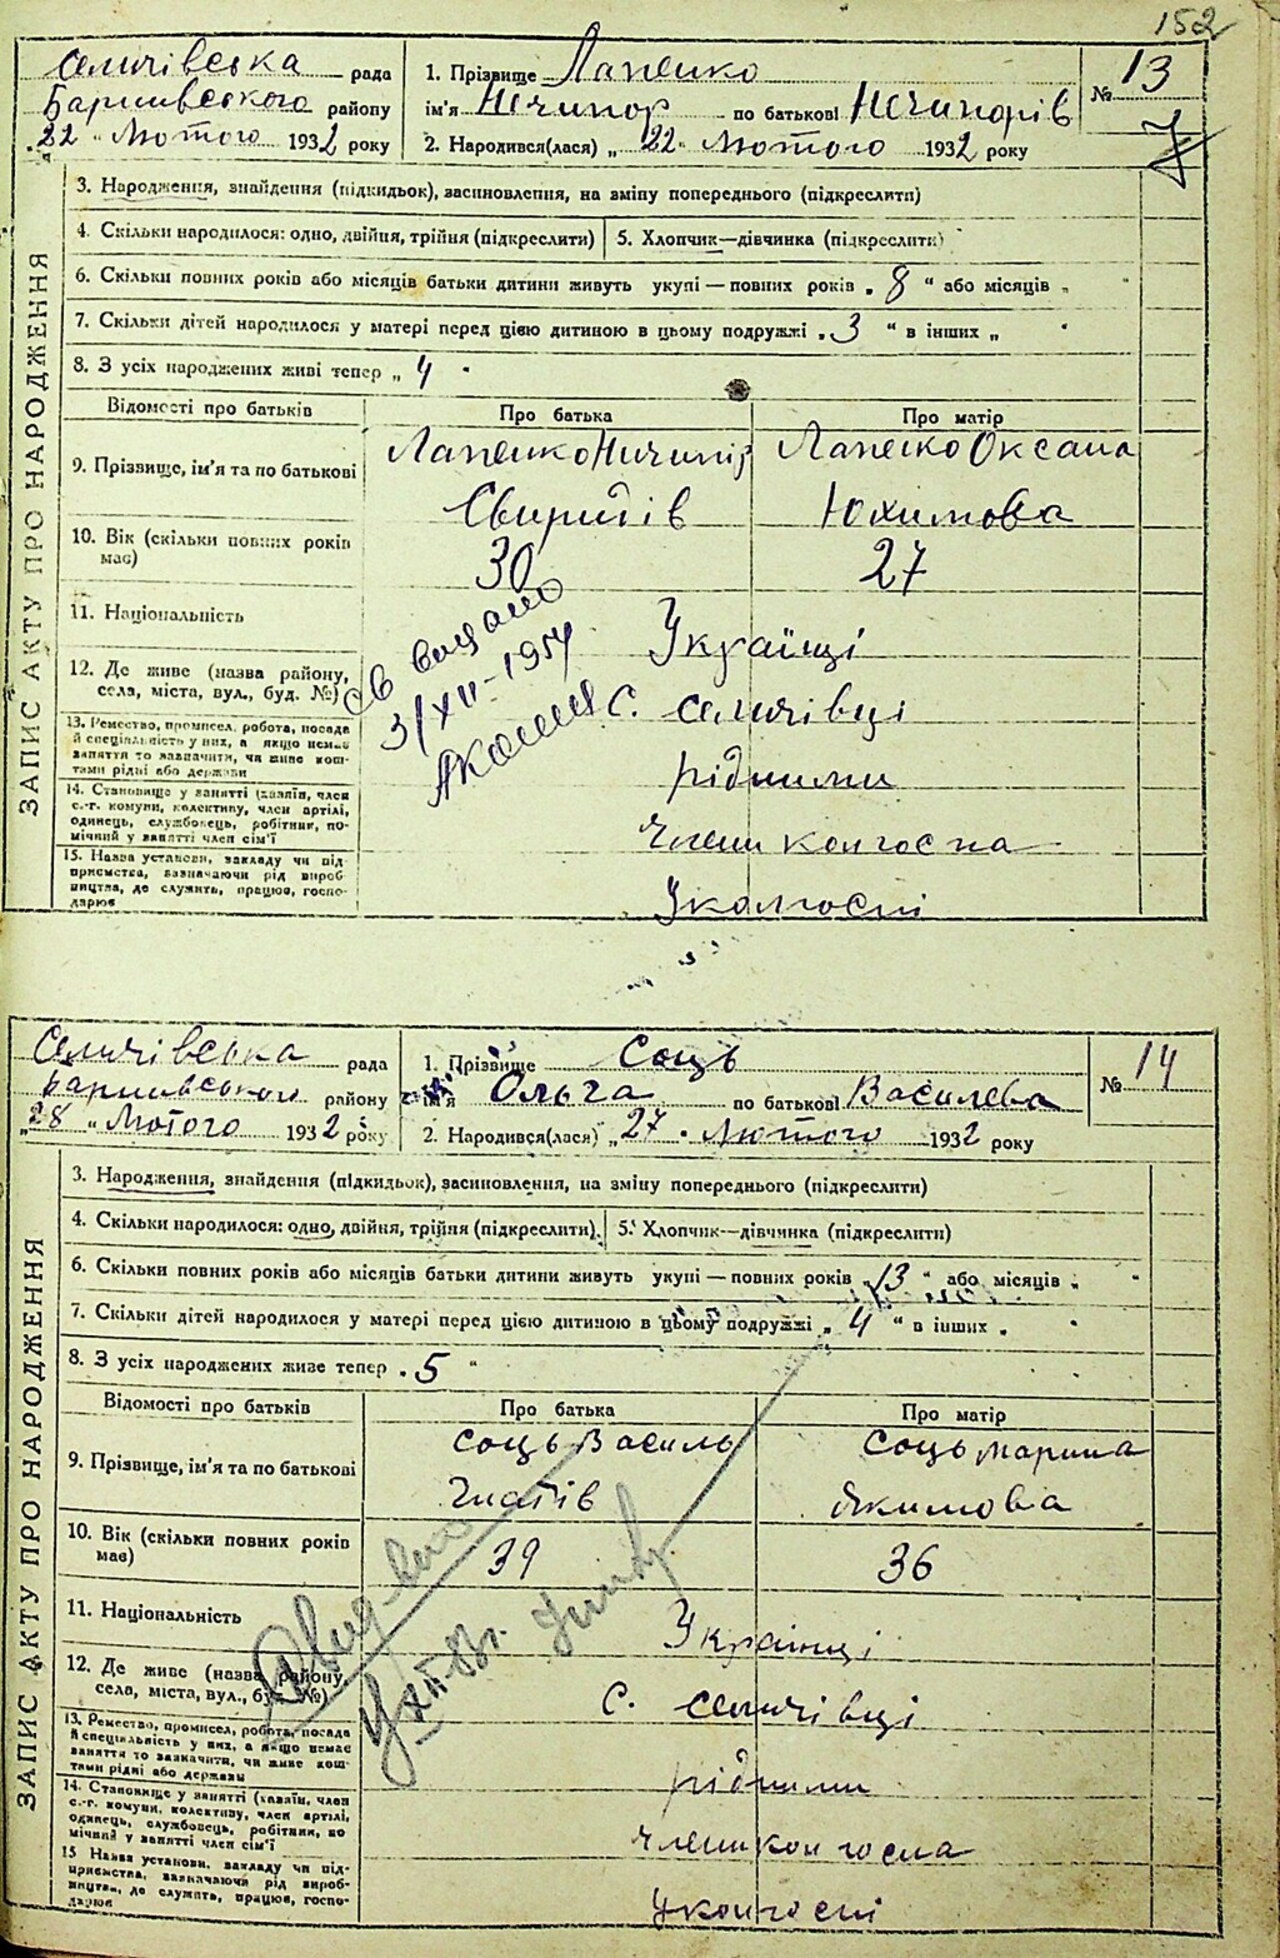 152
Селичівська рада
Баришевського району
"22" Лютого 1932 року
1. Прізвище Лапенко
ім'я Нечипор по батькові Нечипорів
2. Народився(лася) "22" Лютого 1932 року
№ 13
ЗАПИС АКТУ ПРО НАРОДЖЕННЯ
3. Народження, знайдення (підкидьок), засиновлення, на зміну попереднього (підкреслити)
4. Скільки народилося: одно, двійня, трійня (підкреслити) 5. Хлопчик—дівчинка (підкреслити)
6. Скільки повних років або місяців батьки дитини живуть укупі — повних років „ 8 “ або місяців „ "
7. Скільки дітей народилося у матері перед цією дитиною в цьому подружжі „ 3 “ в інших „ "
8. З усіх народжених живі тепер „ 4 "
Відомості про батьків Про батька Про матір
9. Прізвище, ім'я та по батькові Лапенко Ничипір Лапенко Оксана
Свиридів Юхимова
10. Вік (скільки повних років має) 30 27
11. Національність Українці
12. Де живе (назва району, села, міста, вул., буд. №) С. Селичівці
13. Ремество, промисел, робота, посада й спеціальність у них, а якщо немає заняття то зазначити, чи живе коштами рідні або держави
рідними
14. Становище у занятті (хазяїн, член с.-г. комуни, колективу, член артілі, одинець, службовець, робітник, помічний у занятті член сім'ї
члени колгоспа
15. Назва установи, закладу чи підприємства, зазначаючи рід виробництва, де служить, працює, господарює
У колгоспі
св видано
3/XII-1954
Селичівська рада
Баришевського району
„28“ Лютого 1932 року
1. Прізвище Соць
ім'я Ольга по батькові Василева
2. Народився(лася) „27" Лютого 1932 року
№ 14
ЗАПИС АКТУ ПРО НАРОДЖЕННЯ
3. Народження, знайдення (підкидьок), засиновлення, на зміну попереднього (підкреслити)
4. Скільки народилося: одно, двійня, трійня (підкреслити). 5. Хлопчик—дівчинка (підкреслити)
6. Скільки повних років або місяців батьки дитини живуть укупі — повних років „13“ або місяців „ "
7. Скільки дітей народилося у матері перед цією дитиною в цьому подружжі „ 4 “ в інших „ "
8. З усіх народжених живе тепер „ 5 "
Відомості про батьків Про батька Про матір
9. Прізвище, ім'я та по батькові Соць Василь Соць Марина
Гнатів Якимова
10. Вік (скільки повних років має) 39 36
11. Національність Українці
12. Де живе (назва району, села, міста, вул., буд. №) С. Селичівці
13. Ремество, промисел, робота, посада й спеціальність у них, а якщо немає заняття то зазначити, чи живе коштами рідні або держави
рідними
14. Становище у занятті (хазяїн, член с.-г. комуни, колективу, член артілі, одинець, службовець, робітник, помічний у занятті член сім'ї
члени колгоспа
15 Назва установи, закладу чи підприємства, зазначаючи рід виробництва, де служить, працює, господарює
У колгоспі